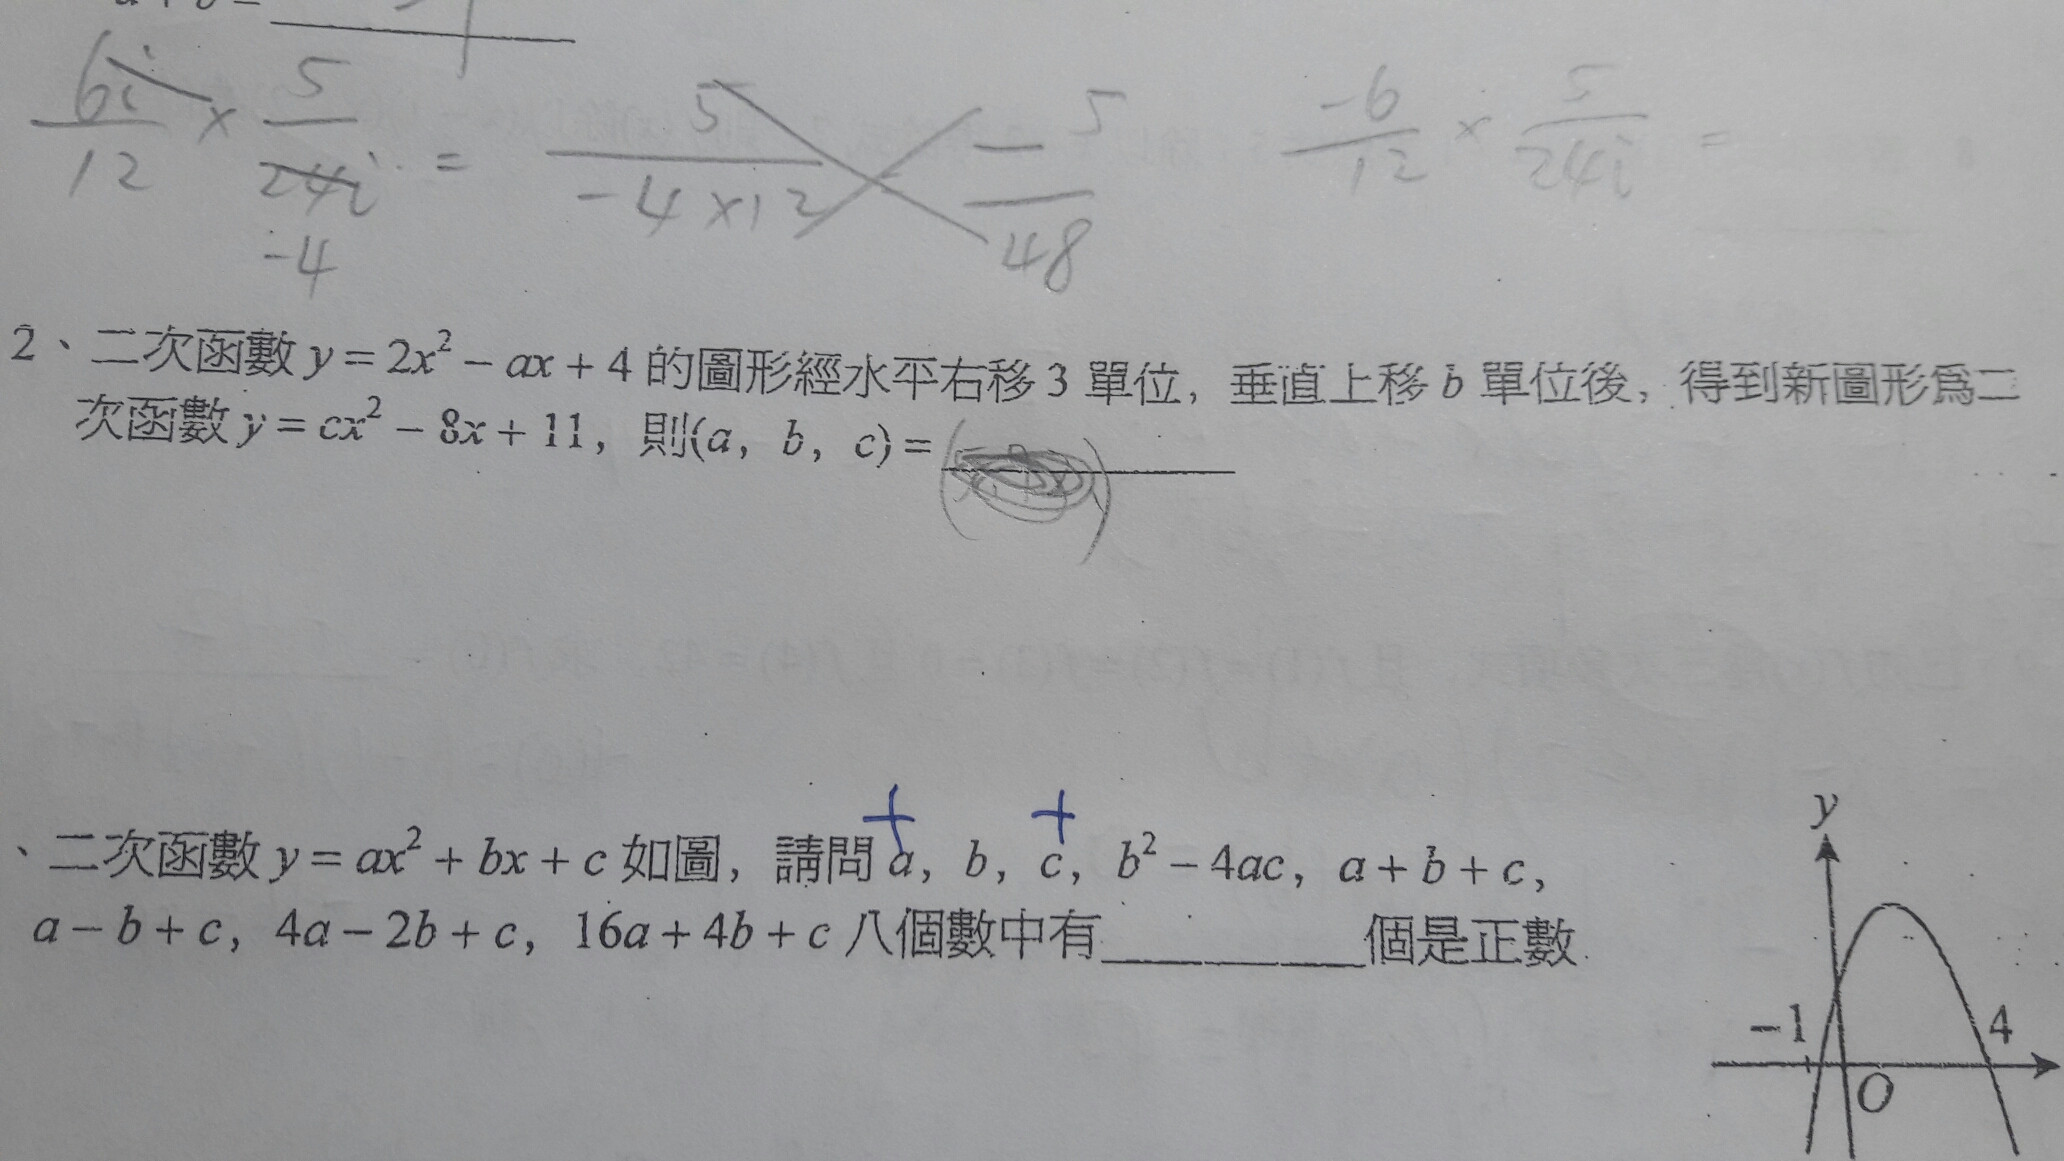 6i/12 × 5/24i = 5/-4×12 -5/48 -6/12 × 5/24i =
-4
2、二次函數 y = 2x² − ax + 4 的圖形經水平右移 3 單位，垂直上移 b 單位後，得到新圖形為二
次函數 y = cx² − 8x + 11，則(a，b，c) = ( )
+ +
、二次函數 y = ax² + bx + c 如圖，請問 a，b，c，b² − 4ac，a + b + c，
a − b + c，4a − 2b + c，16a + 4b + c 八個數中有______個是正數
y
−1 4
O